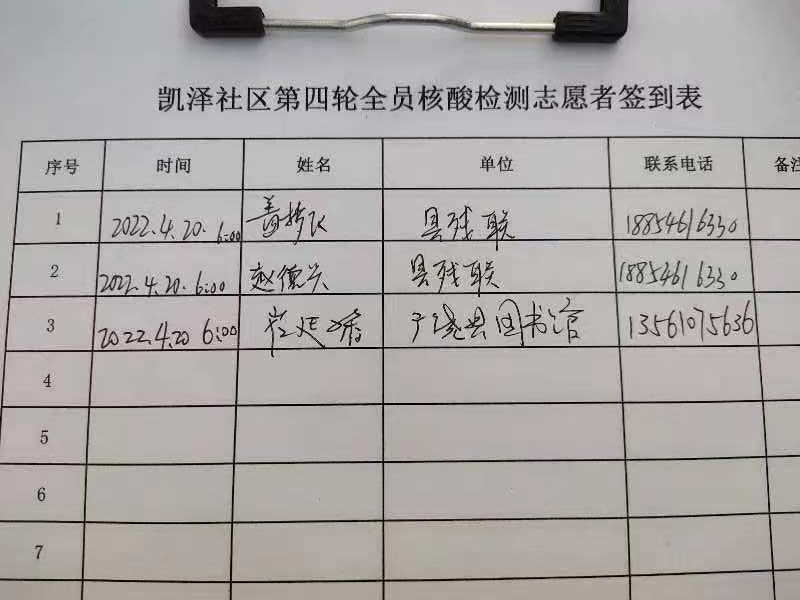 凯泽社区第四轮全员核酸检测志愿者签到表
序号 时间 姓名 单位 联系电话 备注
1 2022.4.20. 6:00 县残联 18854616330
2 2022.4.20. 6:00 赵德兴 县残联 18854616330
3 2022.4.20 6:00 崔延 广饶县图书馆 13561075636
4
5
6
7